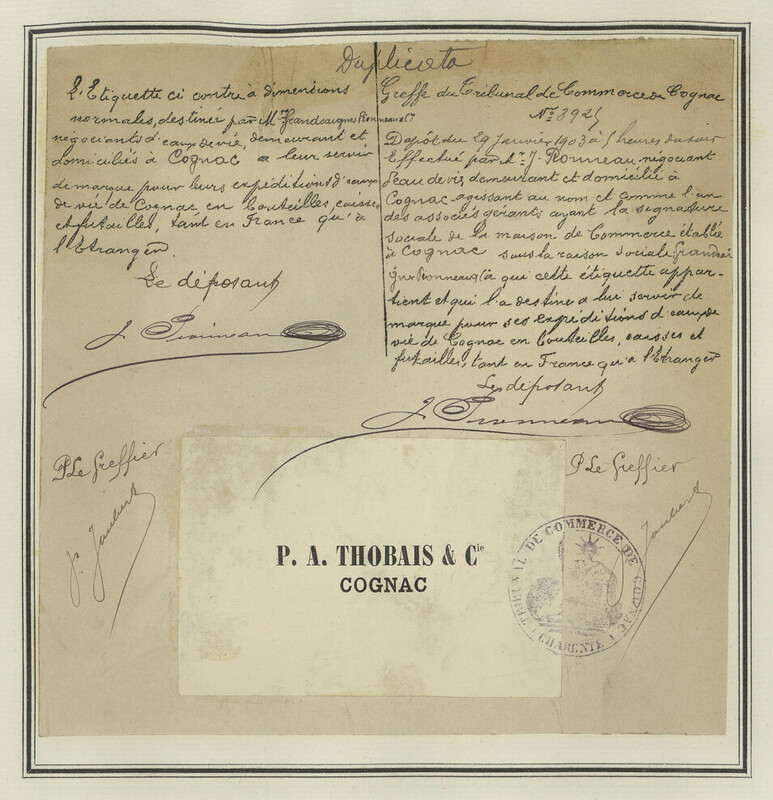 Duplicata
L'Etiquette ci contre à dimensions
normales, destinée par Mrs Grandsaigne Pionneau & Cie
négociants d'eaux de vie, demeurant et
domiciliés à Cognac a leur servir
de marque pour leurs expéditions d'eaux
de vie de Cognac en bouteilles, caisses
et futailles, tant en France qu'à
l'Etranger.
Le déposant
J. Pionneau
Greffe du Tribunal de Commerce de Cognac
No 3925
Dépôt du 29 Janvier 1903 à 5 heures du soir
Effectué par Mr J. Pionneau négociant
d'eau de vie demeurant et domicilié à
Cognac agissant au nom et comme l'un
des associés gérants ayant la signature
sociale de la maison de Commerce établie
à Cognac sous la raison sociale
Pionneau & Cie à qui cette étiquette appar-
tient et qui l'a destine a lui servir de
marque pour ses expéditions d'eaux de
vie de Cognac en bouteilles, caisses et
futailles, tant en France qu'a l'Etranger
Le déposant
J. Pionneau
P Le Greffier
P. Joubert
P Le Greffier
Joubert
P. A. THOBAIS & Cie
COGNAC
TRIBUNAL DE COMMERCE DE COGNAC
(CHARENTE)